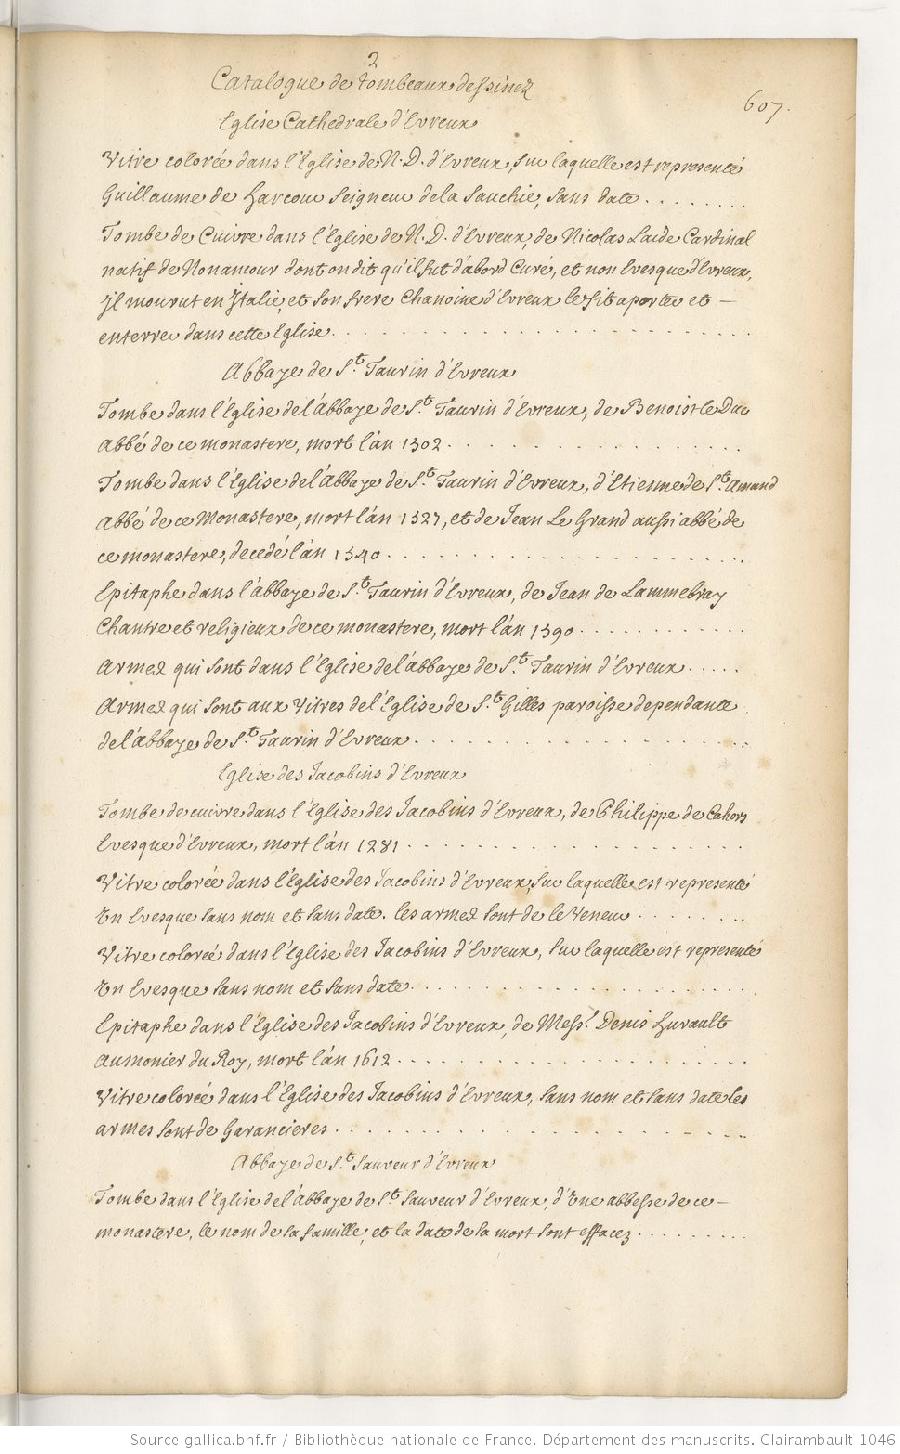 2
Catalogue de tombeaux dessinez
607.
Eglise Cathedrale d'Evreux
Vitre colorée dans l'Eglise de N.D. d'Evreux, sur laquelle est representé
Guillaume de Harcour Seigneur de la Sauchie, sans date . . . . . . . .
Tombe de Cuivre dans l'Eglise de N.D. d'Evreux, de Nicolas Laide Cardinal
natif de Nonancour dont on dit qu'il fut d'abord Curé, et non Evesque d'Evreux,
Jl mourut en Italie, et son frere Chanoine d'Evreux le fit aporter et —
enterrer dans cette Eglise . . . . . . . . . . . . . . . . . . . . . .
Abbaye de St. Taurin d'Evreux
Tombe dans l'Eglise de l'Abbaye de St. Taurin d'Evreux, de Benoist le Duc
abbé de ce monastere, mort l'an 1302 . . . . . . . . . . . . . . . .
Tombe dans l'Eglise de l'Abbaye de St. Taurin d'Evreux, d'Etienne de St. Amand
abbé de ce Monastere, mort l'an 1327, et de Jean Le Grand aussi abbé de
ce monastere, decedé l'an 1340 . . . . . . . . . . . . . . . . . . .
Epitaphe dans l'abbaye de St. Taurin d'Evreux, de Jean de Lammebray
Chantre et religieux de ce monastere, mort l'an 1390 . . . . . . . . .
Armes qui sont dans l'Eglise de l'abbaye de St. Taurin d'Evreux . . . . .
Armes qui sont aux Vitres de l'Eglise de St. Gilles paroisse dependante
de l'abbaye de St. Taurin d'Evreux . . . . . . . . . . . . . . . . . .
Eglise des Jacobins d'Evreux
Tombe de cuivre dans l'Eglise des Jacobins d'Evreux, de Philippe de Cahors
Evesque d'Evreux, mort l'an 1281 . . . . . . . . . . . . . . . . . .
Vitre colorée dans l'Eglise des Jacobins d'Evreux, sur laquelle est representé
Un Evesque sans nom et sans date. les armes sont de le Veneur . . . . . . .
Vitre colorée dans l'Eglise des Jacobins d'Evreux, sur laquelle est representé
Un Evesque sans nom et sans date . . . . . . . . . . . . . . . . . .
Epitaphe dans l'Eglise des Jacobins d'Evreux, de Mess. Denis Hurault
aumonier du Roy, mort l'an 1612 . . . . . . . . . . . . . . . . . .
Vitre colorée dans l'Eglise des Jacobins d'Evreux, sans nom et sans date les
armes sont de Garancieres . . . . . . . . . . . . . . . . . . . . . .
Abbaye de St. Sauveur d'Evreux
Tombe dans l'Eglise de l'abbaye de St. Sauveur d'Evreux, d'Une abbesse de ce —
monastere, le nom de sa famille, et la date de sa mort sont effacez . . . . . . . .
Source gallica.bnf.fr / Bibliothèque nationale de France. Département des manuscrits. Clairambault 1046